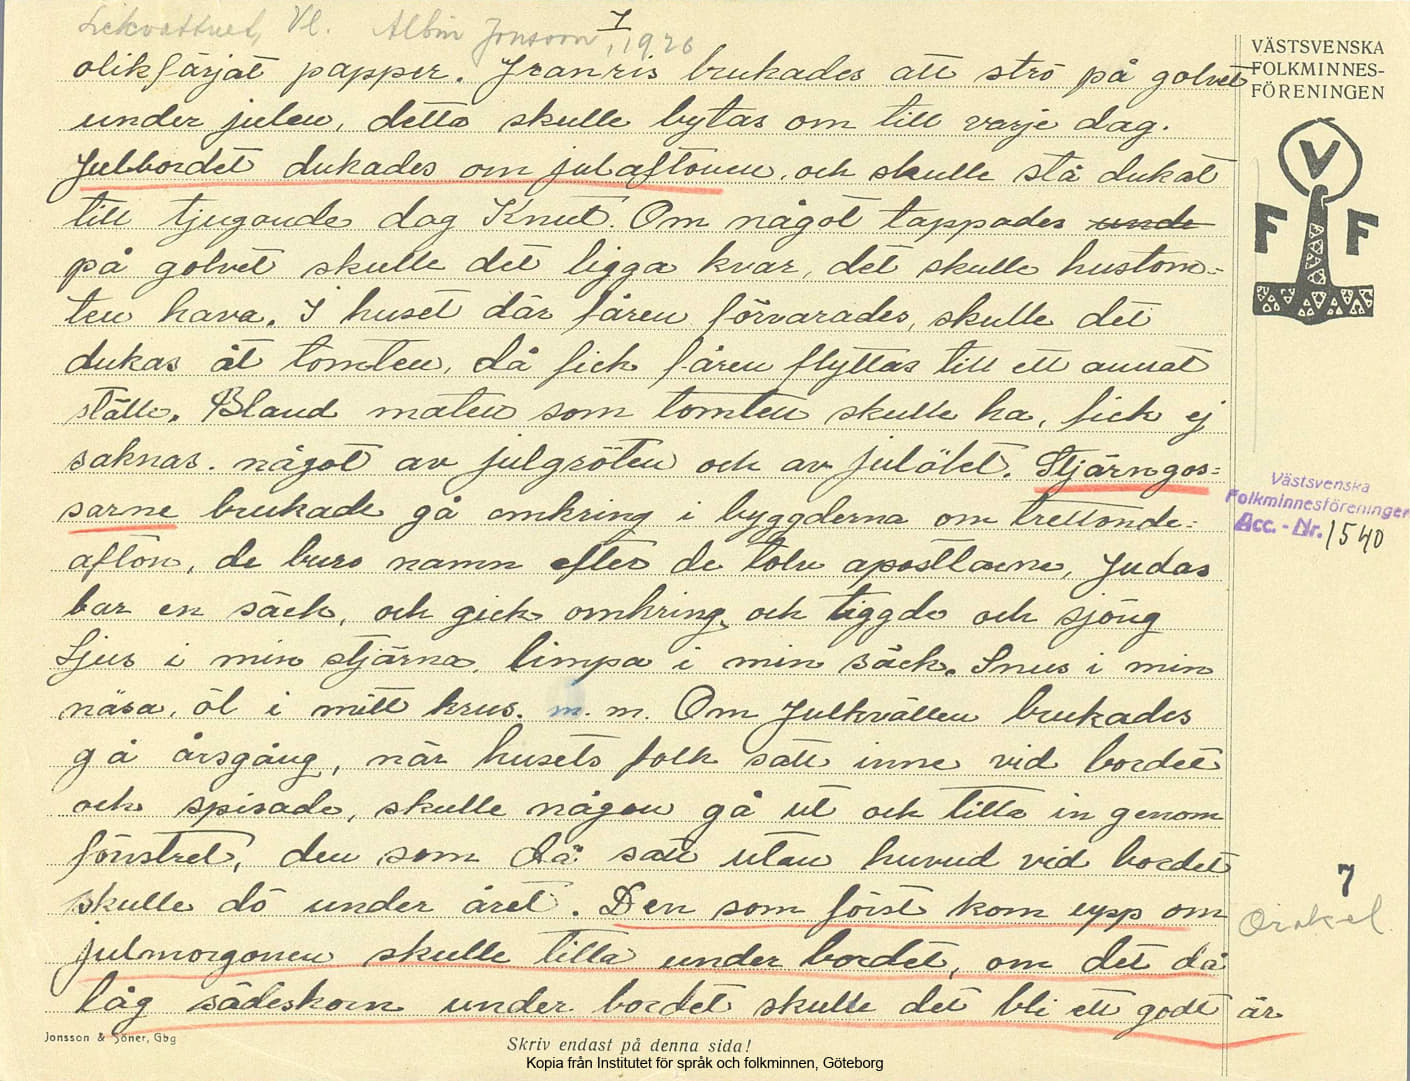 Lekvattnet, Vl. Albin Jonsson, 1926
7
olikfärjat papper. Granris brukades att strö på golvet
under julen, detta skulle bytas om till varje dag.
Julbordet dukades om julaftonen, och skulle stå dukat
till tjugonde dag Knut. Om något tappades unde
på golvet skulle det ligga kvar, det skulle hustom=
ten hava. I huset där fåren förvarades, skulle det
dukas åt tomten, då fick fåren flyttas till ett annat
ställe. Bland maten som tomten skulle ha, fick ej
saknas. något av julgröten och av julölet. Stjärngos=
sarne brukade gå omkring i byggderna om trettonde=
afton, de buro namn efter de tolv apostlarne, Judas
bar en säck, och gick omkring och tiggde och sjöng
Ljus i min stjärna, limpa i min säck. Snus i min
näsa, öl i mitt krus. m. m. Om Julkvällen brukades
gå årsgång, när husets folk satt inne vid bordet
och spisade, skulle någon gå ut och titta in genom
fönstret, den som då satt utan huvud vid bordet
skulle dö under året. Den som först kom upp om
julmorgonen skulle titta under bordet, om det då
låg sädeskorn under bordet skulle det bli ett godt år
VÄSTSVENSKA
FOLKMINNES-
FÖRENINGEN
V
F F
Västsvenska
Folkminnesföreningen
Acc.-Nr. 1540
7
Orakel.
Jonsson & Söner, Gbg
Skriv endast på denna sida!
Kopia från Institutet för språk och folkminnen, Göteborg